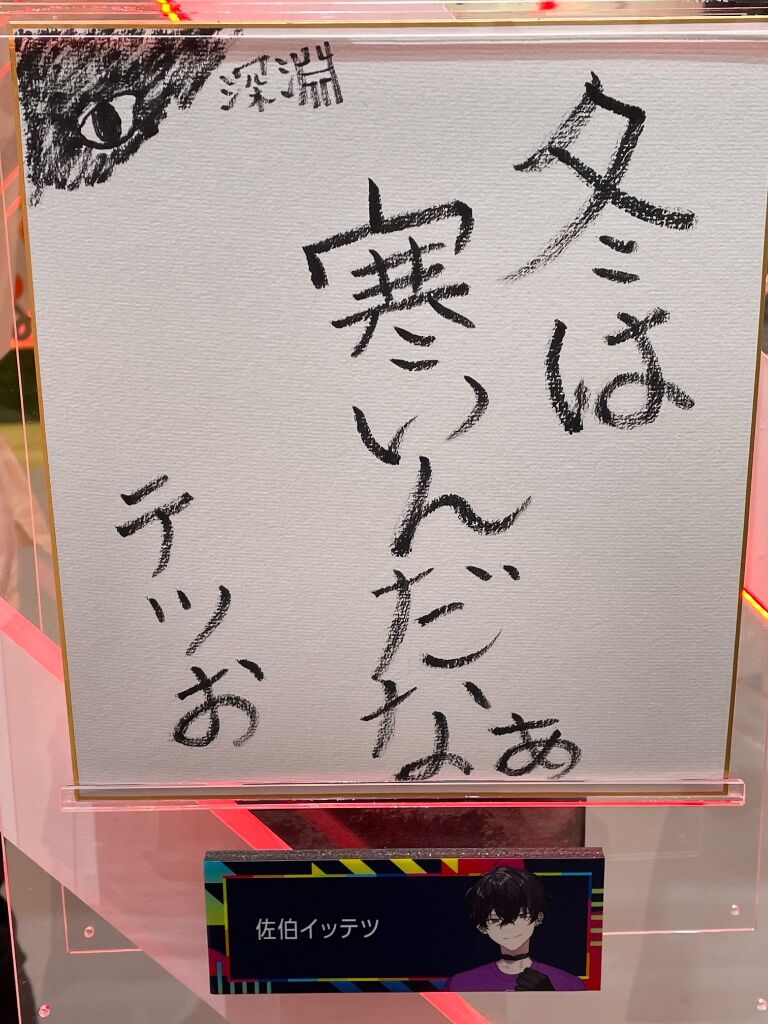 冬は
寒いんだなぁ
深淵
テツお
佐伯イッテツ